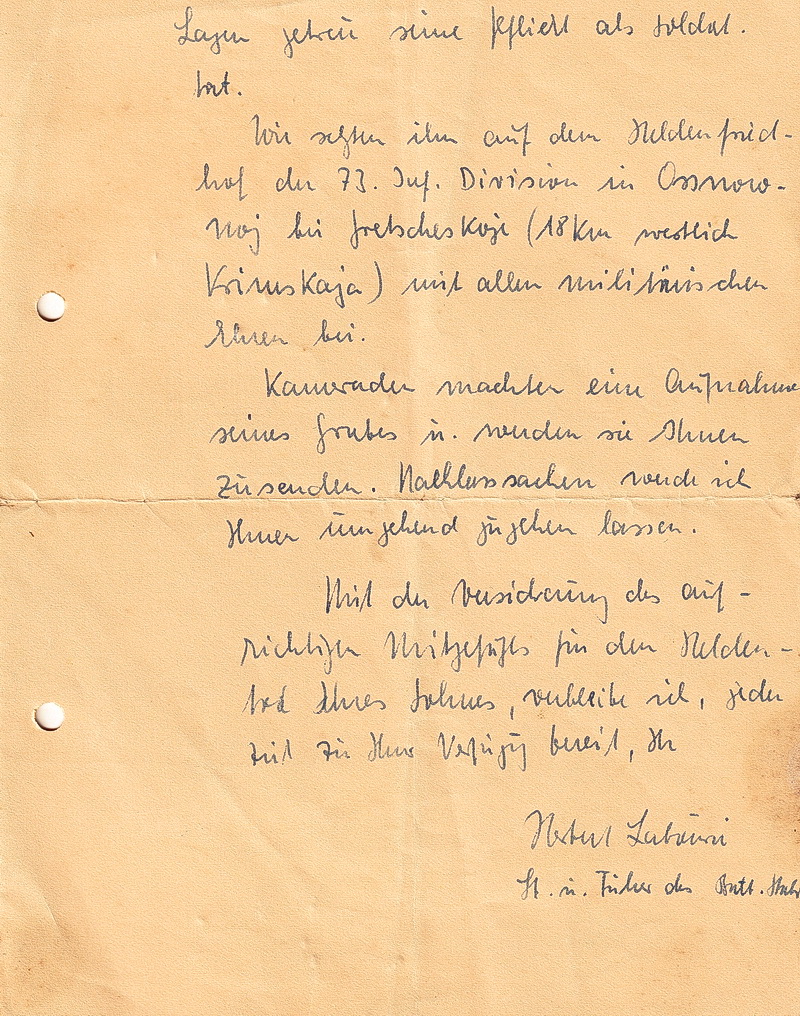 Lagen getreu seine Pflicht als Soldat.
tat.
Wir setzten ihn auf dem Heldenfried-
hof der 73. Inf. Division in Ossnowo-
noj bei Gretscheskoje (18 Km westlich
Krimskaja) mit allen militärischen
Ehren bei.
Kameraden machten eine Aufnahme
seines Grabes u. werden sie Ihnen
zusenden. Nachlasssachen werde ich
Ihnen umgehend zugehen lassen.
Mit der Versicherung des auf-
richtigen Mitgefühls für den Helden-
tod Ihres Sohnes, verbleibe ich, jeder
zeit zu Ihrer Verfügung bereit, Ihr
Herbert
Lt. u. Führer des